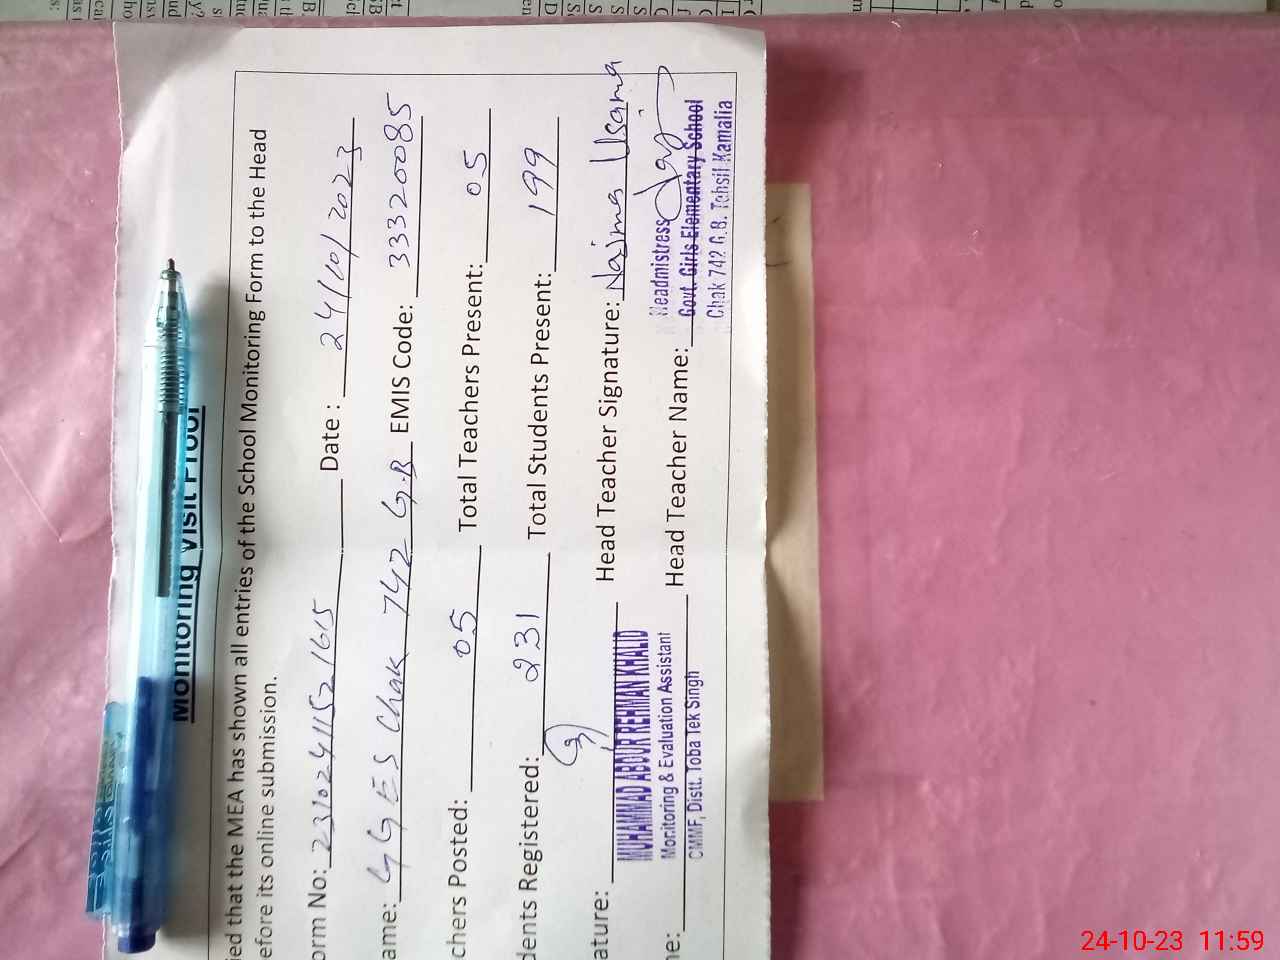 Monitoring Visit Proof
ied that the MEA has shown all entries of the School Monitoring Form to the Head
efore its online submission.
orm No: 23102411521615 Date : 24/10/2023
ame: GGES Chak 742 G.B EMIS Code: 33320085
chers Posted: 05 Total Teachers Present: 05
dents Registered: 231 Total Students Present: 199
ature: Head Teacher Signature: Najma Usama
MUHAMMAD ABDUR REHMAN KHALID
Monitoring & Evaluation Assistant
CMMF, Distt. Toba Tek Singh
me: Head Teacher Name:
Headmistress
Govt. Girls Elementary School
Chak 742 G.B. Tehsil Kamalia
24-10-23 11:59